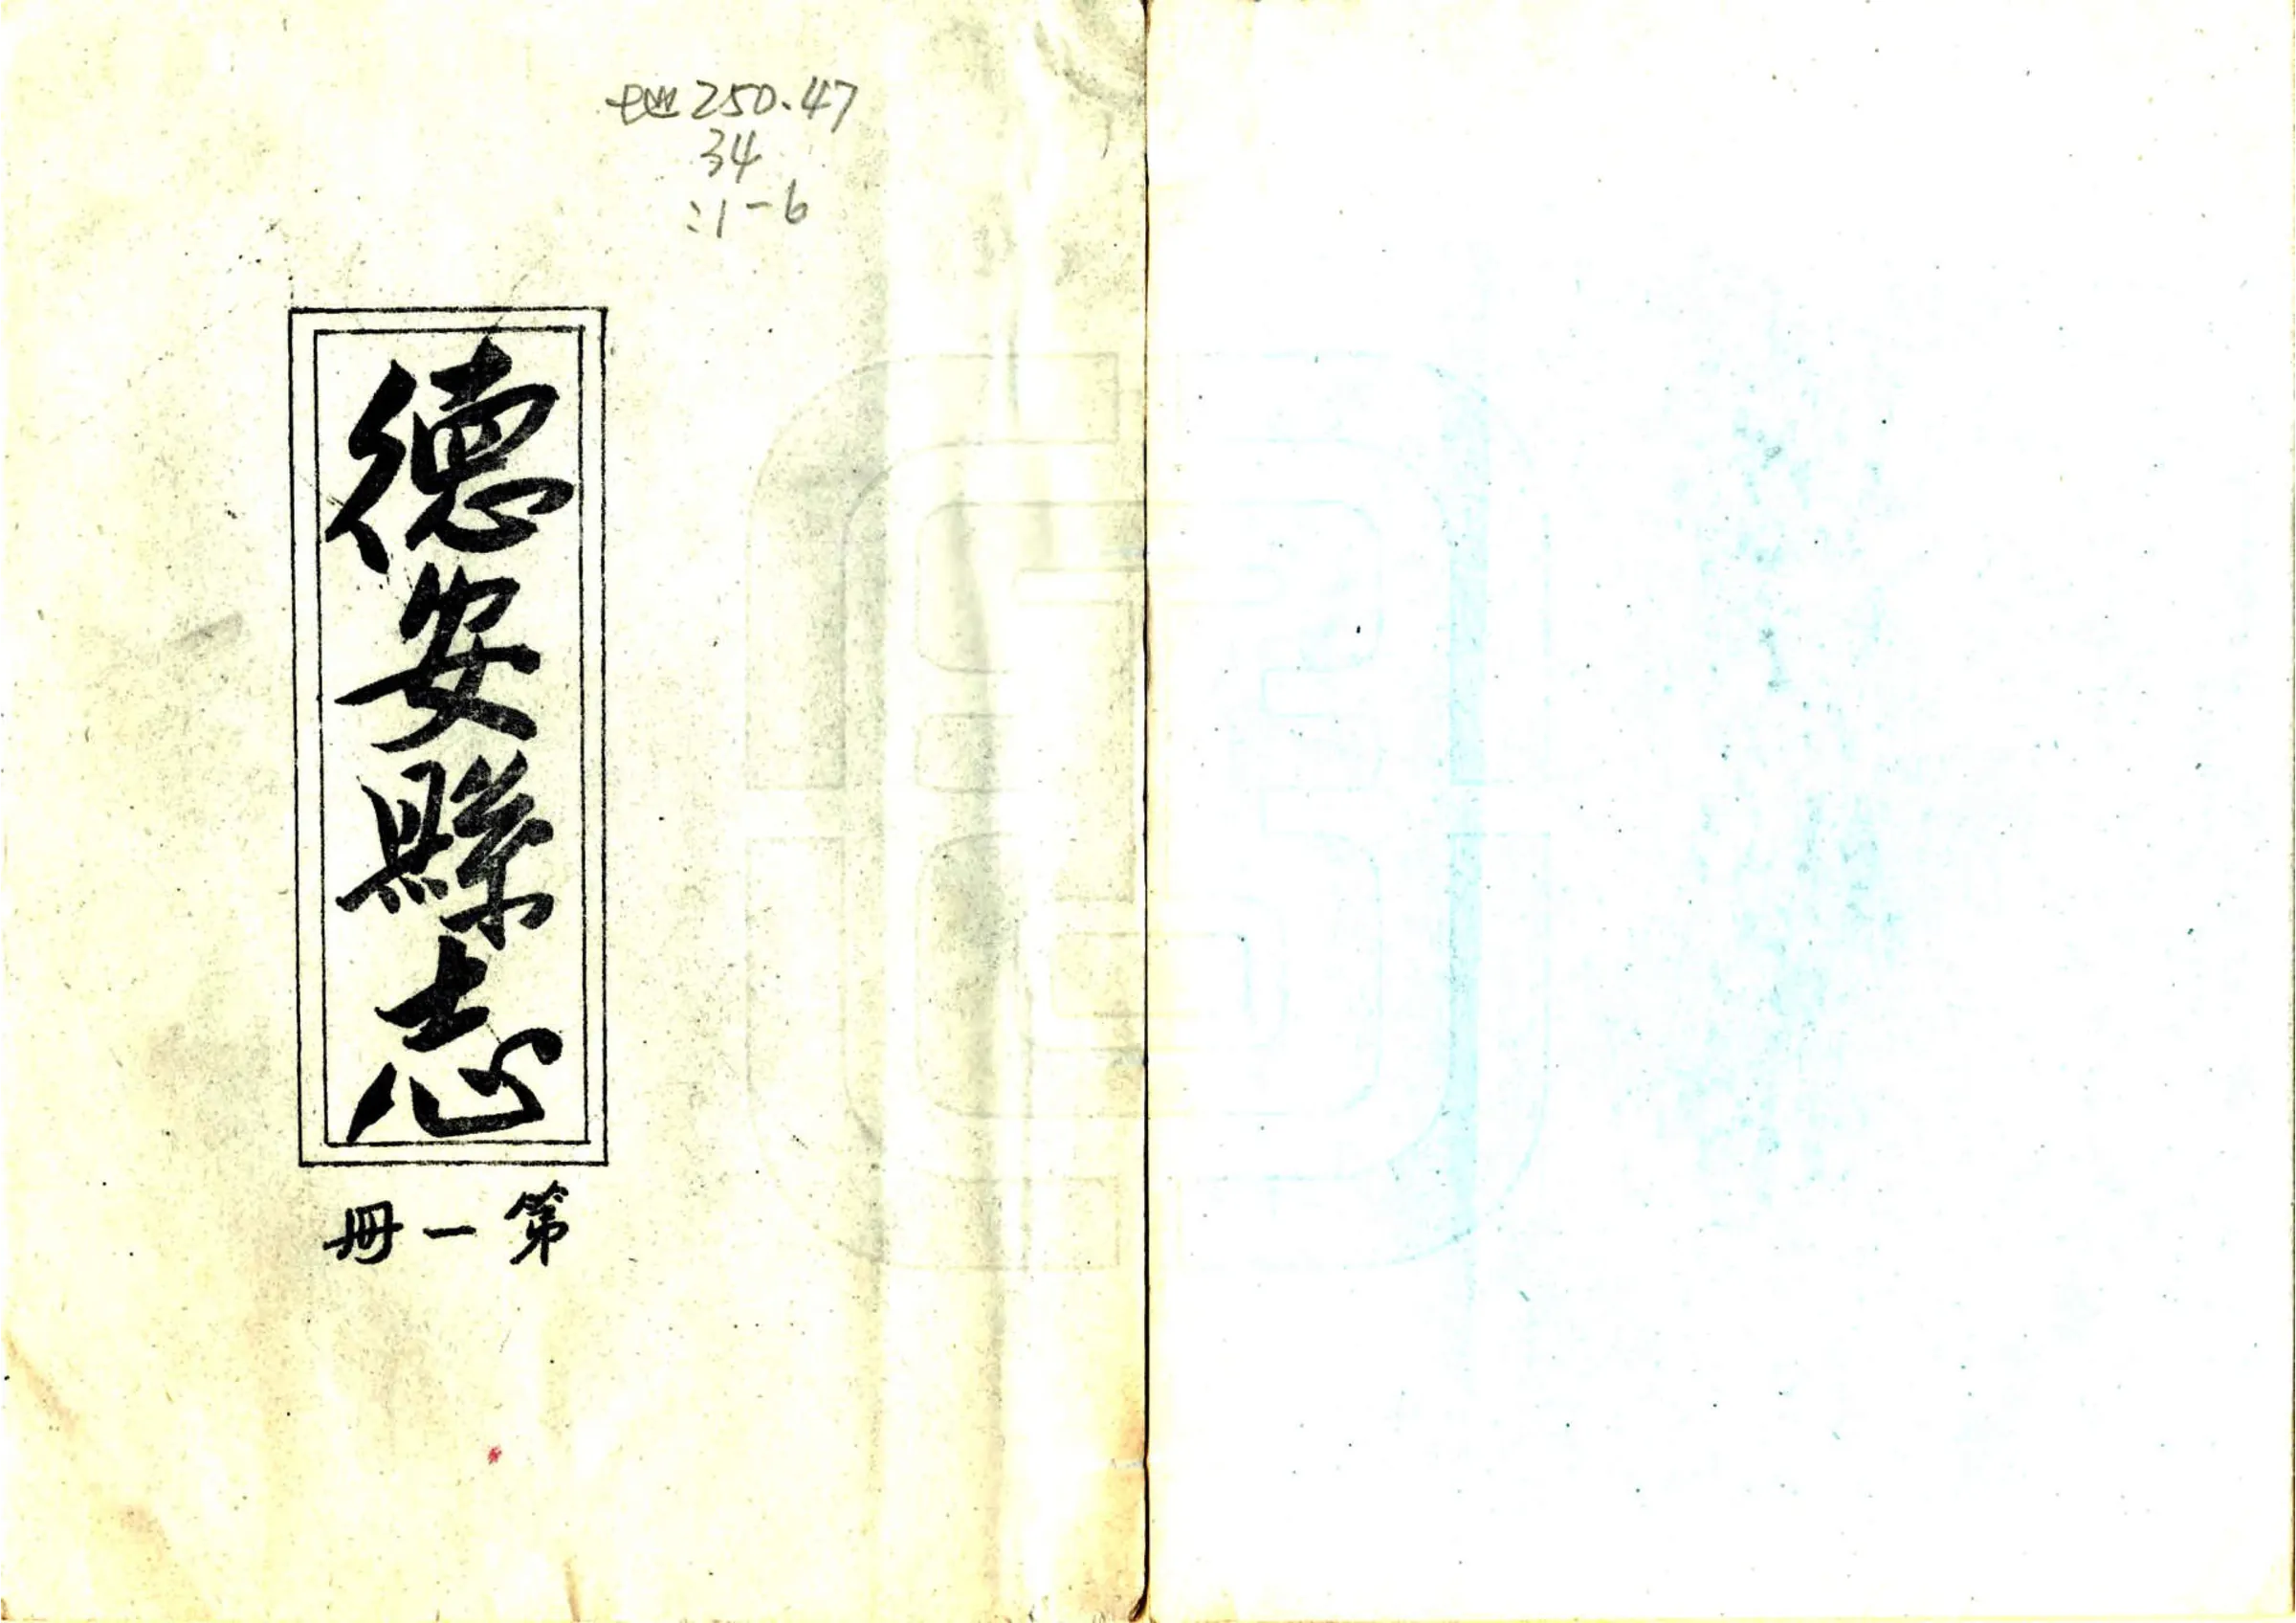 地250.47
34
:1-6
德安縣志
第一冊